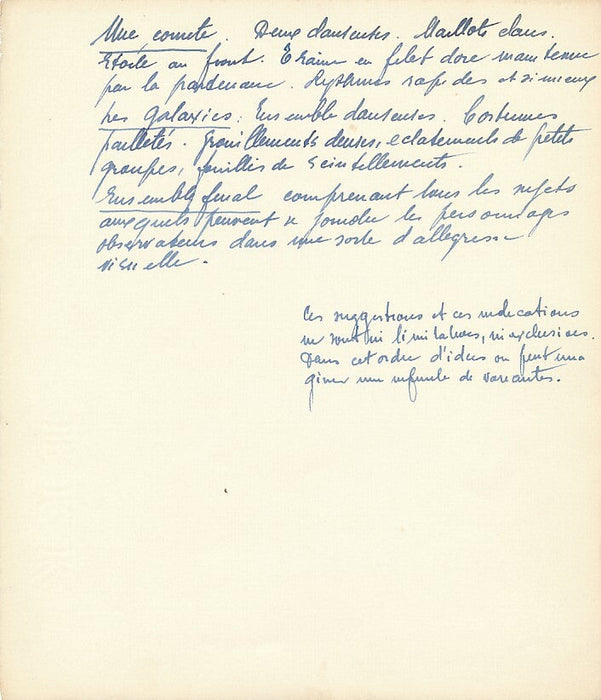 Une comète. Deux danseuses. Maillots clairs.
Etoile au front. Traine en filet doré maintenue
par la partenaire. Rythmes rapides et sinueux
Les galaxies: Ensemble danseuses. Costumes
pailletés. Grouillements denses, eclatements de petits
groupes, fouillis de scintillements.
Ensemble final comprenant tous les sujets
auxquels peuvent se joindre les personnages
observateurs dans une sorte d'allegresse
visuelle.
Ces suggestions et ces indications
ne sont ni limitatives, ni exclusives.
Dans cet ordre d'idées on peut ima
giner une infinité de variantes.